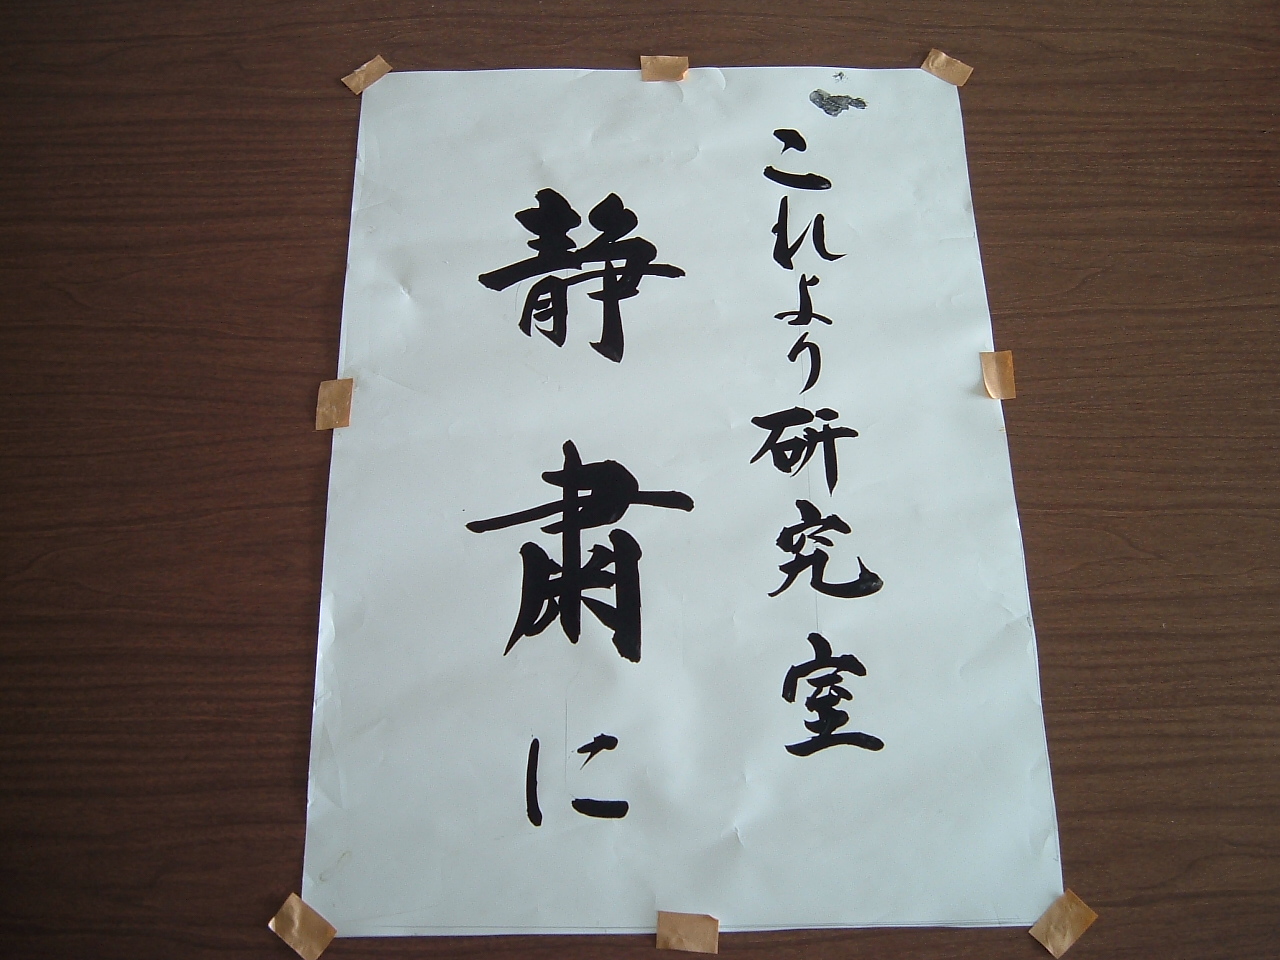 これより研究室
静粛に